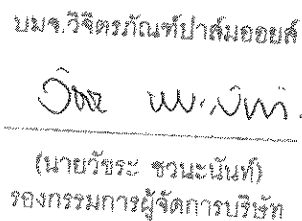 บมจ.วิจิตรภัณฑ์ปาล์มออยล์
(นายวัชระ ชวนะนันท์)
รองกรรมการผู้จัดการบริษัท